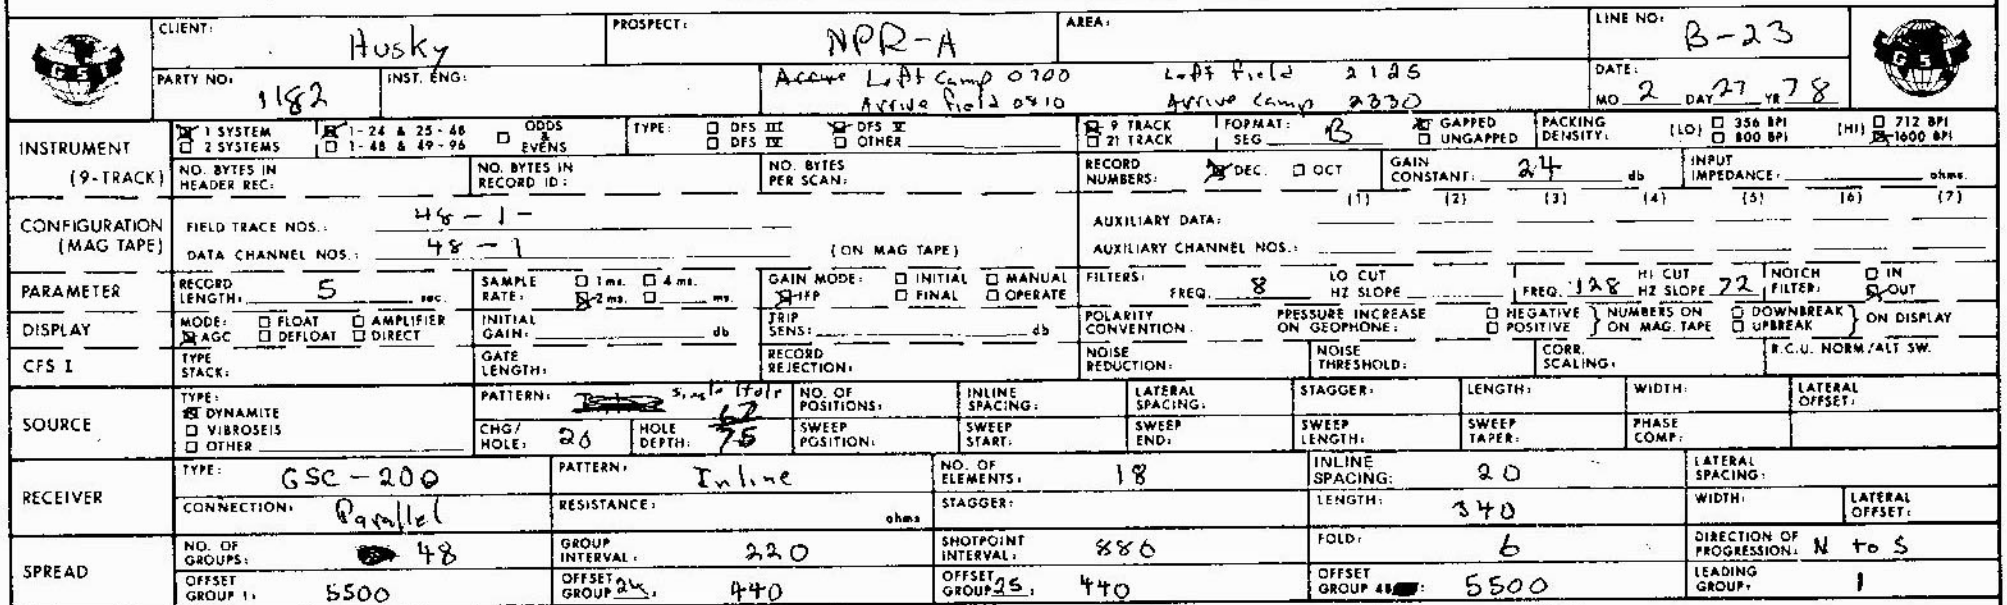 CLIENT: Husky PROSPECT: NPR-A AREA: LINE NO: B-23
GSI GSI
PARTY NO: 1182 INST. ENG: Left Camp 0700 Left field 2125 DATE:
Arrive field 0810 Arrive Camp 2330 MO 2 DAY 27 YR 78
INSTRUMENT 1 SYSTEM 1-24 & 25-48 ODDS & EVENS TYPE: DFS III DFS V 9 TRACK FORMAT: GAPPED PACKING DENSITY: (LO) 356 BPI (HI) 712 BPI
2 SYSTEMS 1-48 & 49-96 DFS IV OTHER 21 TRACK SEG B UNGAPPED 800 BPI 1600 BPI
(9-TRACK) NO. BYTES IN HEADER REC: NO. BYTES IN RECORD ID: NO. BYTES PER SCAN: RECORD NUMBERS: DEC. OCT GAIN CONSTANT: 24 db INPUT IMPEDANCE: ohms.
CONFIGURATION FIELD TRACE NOS.: 48-1- AUXILIARY DATA: (1) (2) (3) (4) (5) (6) (7)
(MAG TAPE) DATA CHANNEL NOS.: 48-1 (ON MAG TAPE) AUXILIARY CHANNEL NOS.:
PARAMETER RECORD LENGTH: 5 sec. SAMPLE RATE: 1 ms. 4 ms. 2 ms. ms. GAIN MODE: INITIAL MANUAL IFP FINAL OPERATE FILTERS: FREQ. 8 LO CUT HZ SLOPE FREQ. 128 HI CUT HZ SLOPE 72 NOTCH FILTER: IN OUT
DISPLAY MODE: FLOAT AMPLIFIER AGC DEFLOAT DIRECT INITIAL GAIN: db TRIP SENS: db POLARITY CONVENTION. PRESSURE INCREASE ON GEOPHONE: NEGATIVE POSITIVE NUMBERS ON ON MAG. TAPE DOWNBREAK UPBREAK ON DISPLAY
CFS I TYPE STACK: GATE LENGTH: RECORD REJECTION: NOISE REDUCTION: NOISE THRESHOLD: CORR. SCALING: R.C.U. NORM/ALT SW.
SOURCE TYPE: DYNAMITE VIBROSEIS OTHER PATTERN: Single Hole NO. OF POSITIONS: INLINE SPACING: LATERAL SPACING: STAGGER: LENGTH: WIDTH: LATERAL OFFSET:
CHG/HOLE: 20 HOLE DEPTH: 67 75 SWEEP POSITION: SWEEP START: SWEEP END: SWEEP LENGTH: SWEEP TAPER: PHASE COMP:
RECEIVER TYPE: GSC-200 PATTERN: Inline NO. OF ELEMENTS: 18 INLINE SPACING: 20 LATERAL SPACING:
CONNECTION: Parallel RESISTANCE: ohms STAGGER: LENGTH: 340 WIDTH: LATERAL OFFSET:
SPREAD NO. OF GROUPS: 48 GROUP INTERVAL: 220 SHOTPOINT INTERVAL: 880 FOLD: 6 DIRECTION OF PROGRESSION: N to S
OFFSET GROUP 1: 5500 OFFSET GROUP 24: 440 OFFSET GROUP 25: 440 OFFSET GROUP 48: 5500 LEADING GROUP: 1